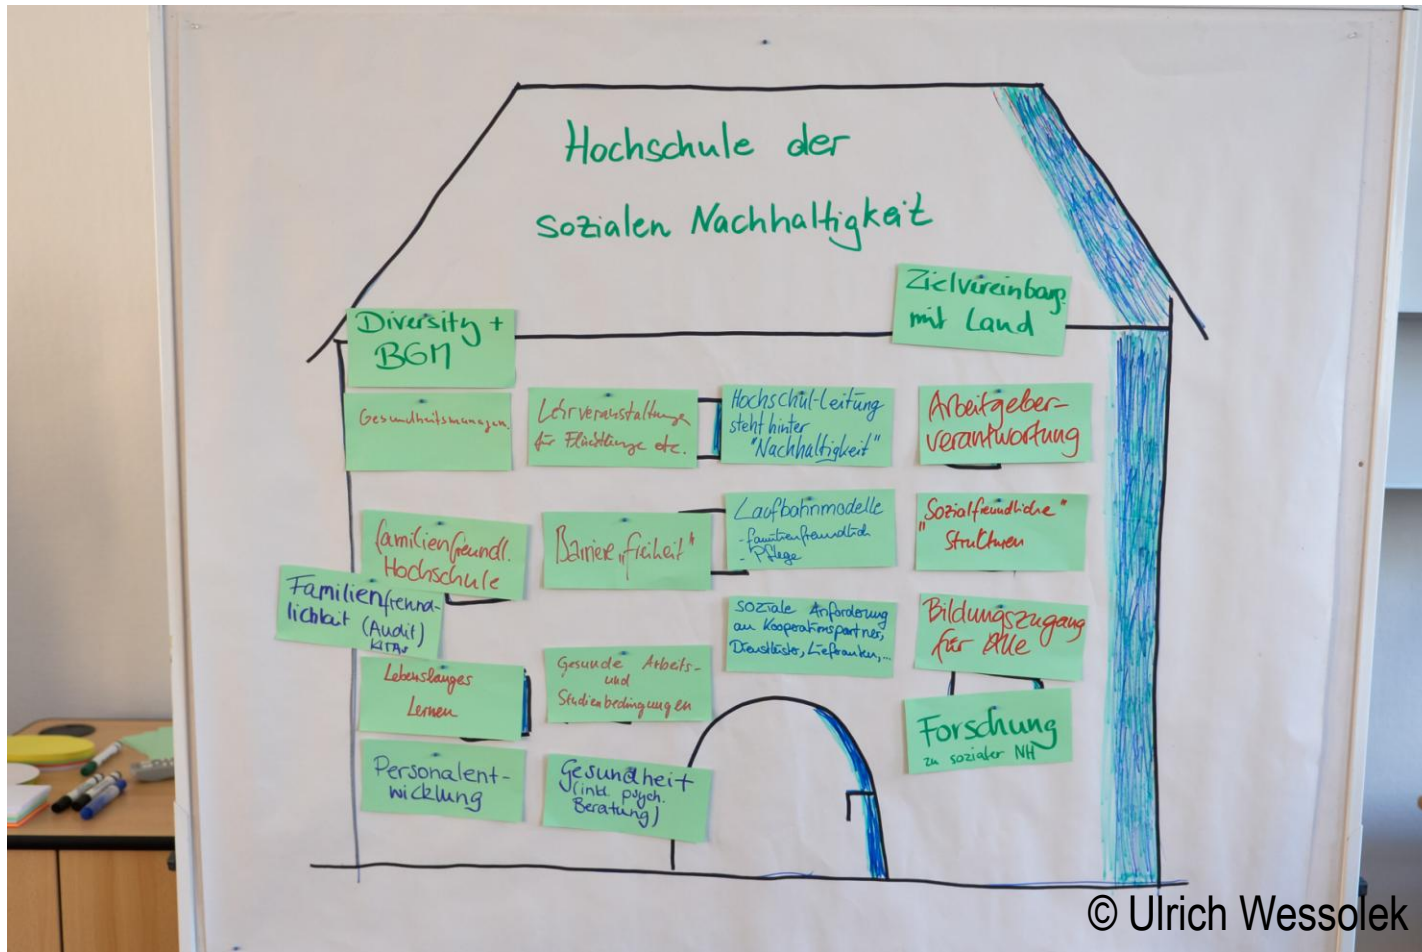 Hochschule der
sozialen Nachhaltigkeit
Zielvereinbarg.
mit Land
Diversity +
BGM
Gesundheitsmanagem.
Lehrveranstaltunge
für Flüchtlinge etc.
Hochschul-Leitung
steht hinter
"Nachhaltigkeit"
Arbeitgeber-
verantwortung
familienfreundl.
Hochschule
Barriere„freiheit"
Laufbahnmodelle
- familienfreundlich
- Pflege
„Sozialfreundliche"
Strukturen
Familienfreund-
lichkeit (Audit)
KITAs
soziale Anforderung
an Kooperationspartner,
Dienstleister, Lieferanten,...
Bildungszugang
für Alle
Lebenslanges
Lernen
Gesunde Arbeits-
und
Studienbedingungen
Forschung
zu sozialer NH
Personalent-
wicklung
Gesundheit
(inkl. psych.
Beratung)
© Ulrich Wessolek